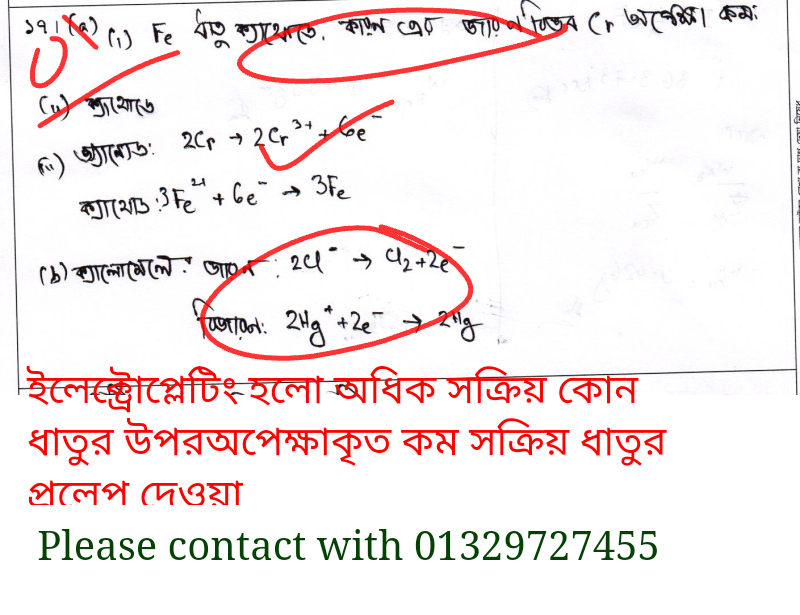 ১৭। (a) (i) Fe ধাতু ক্যাথোডে, কারন এর জারন বিভব Cr অপেক্ষা কম।
(ii) ক্যাথোডে
(iii) অ্যানোড: 2Cr → 2Cr³⁺ + 6e⁻
ক্যাথোড: 3Fe²⁺ + 6e⁻ → 3Fe
(b) ক্যালোমেলে: জারন: 2Cl⁻ → Cl₂+2e⁻
বিজারন: 2Hg⁺+2e⁻ → 2Hg
ইলেক্ট্রোপ্লেটিং হলো অধিক সক্রিয় কোন
ধাতুর উপরঅপেক্ষাকৃত কম সক্রিয় ধাতুর
প্রলেপ দেওয়া
Please contact with 01329727455